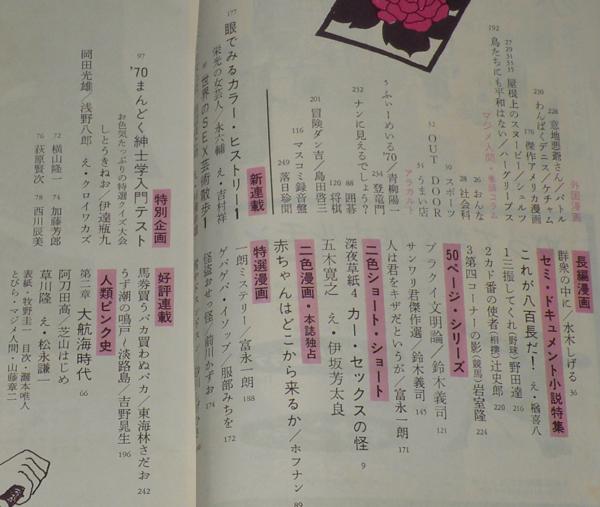 外国漫画
228 意地悪爺さん/バトル
230 わんぱくデニス/ケチャム
176 傑作アメリカ漫画
27 29 31 33 35 屋根上のスヌーピー/シュルツ
192 鳥たちにも平和はない/ハーグリーブス
マジメ人間・季語コラム
26 おんな
28 社会科
50 スポーツ
52 OUT DOOR
51 うまい店
アラカルト
5 ふぃーめいる'70/青柳陽一
234 登竜門
232 ナンに見えるでしょう?
88 囲碁
120 将棋
201 冒険ダン吉/島田啓三
116 マスコミ録音盤
249 落日珍聞
長編漫画
群衆の中に/水木しげる 36
セミ・ドキュメント小説特集
これが八百長だ! え・楢喜八
1 三振してくれ(野球)野田達 216
2 カド番の使者(相撲)辻史郎 220
3 第四コーナーの影(競馬)岩室隆 224
50ページ・シリーズ
ブラクイ文明論/鈴木義司 121
サンワリ君傑作選/鈴木義司 145
人は君をキザだというが/富永一朗 171
二色ショート・ショート
深夜草紙4 カー・セックスの怪 9
五木寛之 え・伊坂芳太良
二色漫画・本誌独占
赤ちゃんはどこから来るか/ホフナン 89
新連載
177 眼でみるカラー・ヒストリー1
栄光の女芸人/永六輔 え・吉村祥
世界のSEX芸術散歩1
特選漫画
一朗ミステリー/富永一朗 188
ゲバゲバ・イソップ/服部みちを 172
怪盗おせっ怪/前川かずお 174
特別企画
97 '70まんどく紳士学入門テスト
お色気たっぷりの特選クイズ大会
しとうきねお/伊達瓶九
岡田光雄/浅野八郎 え・クロイワカズ
72 横山隆一 74 加藤芳郎
76 荻原賢次 78 西川辰美
好評連載
馬券買うカバ買わぬバカ/東海林さだお 242
うず潮の鳴戸〜淡路島/吉野晃生 196
人類ピンク史
第二章 大航海時代 66
阿刀田高/芝山はじめ
草川隆 え・松永謙一
表紙・牧野圭一 目次・瀰本唯人
とびら・マジメ人間・山藤章二